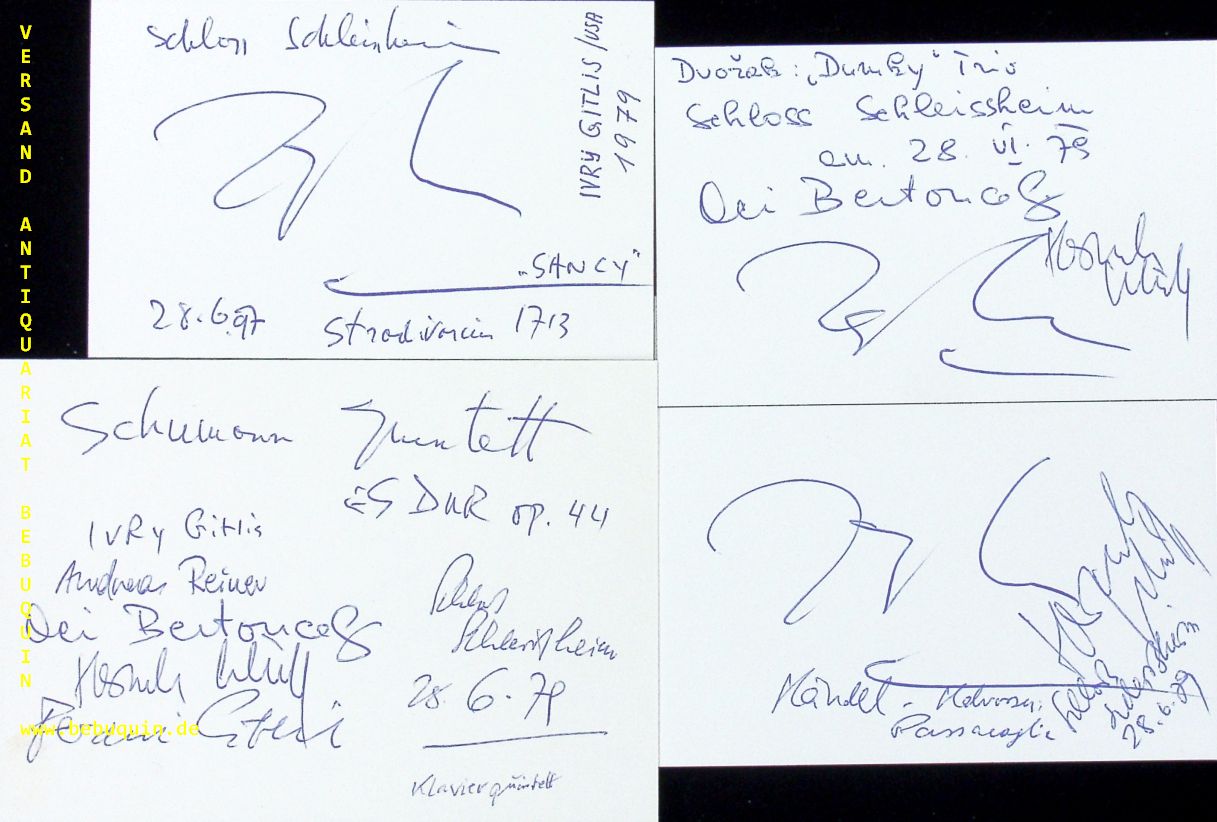 VERSAND ANTIQUARIAT BEBUQUIN
www.bebuquin.de
Schloss Schleissheim
IVRY GITLIS/USA
1979
„SANCY“
28.6.97
Stradivarius 1713
Dvořák: „Dumky“ Trio
Schloss Schleissheim
am 28. VI. 79
Schumann Quintett
ES DUR op. 44
IVRY Gitlis
Andreas Reiner
Schloss
Schleissheim
28.6.79
Klavierquintett
Händel - Halvorsen:
Passacaglia
Schloß
Schleissheim
28.6.79